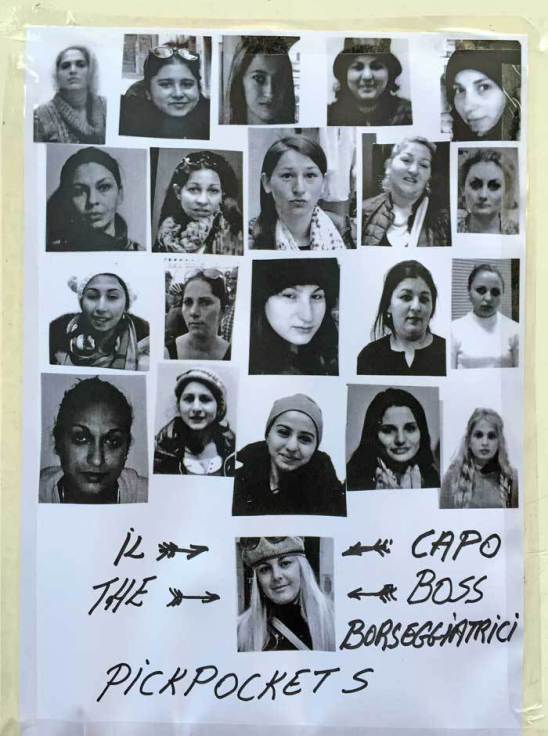 IL CAPO
THE BOSS
BORSEGGIATRICI
PICKPOCKETS